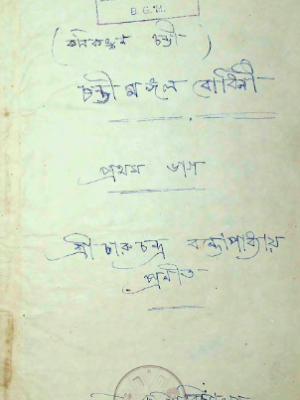 D.G.M.
(কবিকঙ্কণ চণ্ডী)
চণ্ডীমঙ্গল বোধিনী
প্রথম ভাগ
শ্রীচারুচন্দ্র বন্দ্যোপাধ্যায়
প্রণীত